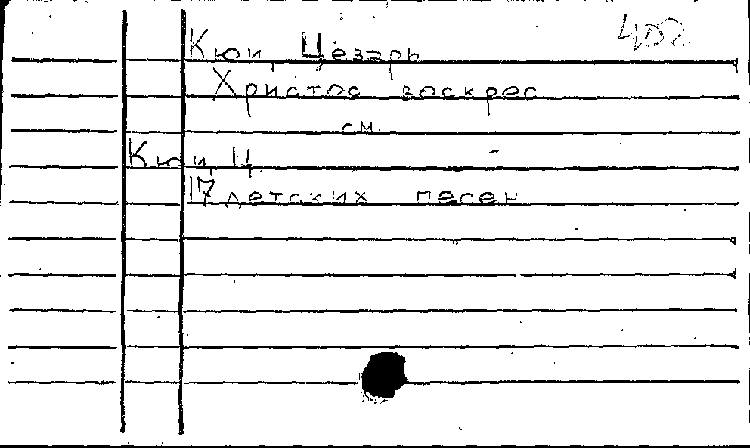 Кюи, Цезарь
Христос воскрес
см.
Кюи, Ц.
17 детских песен